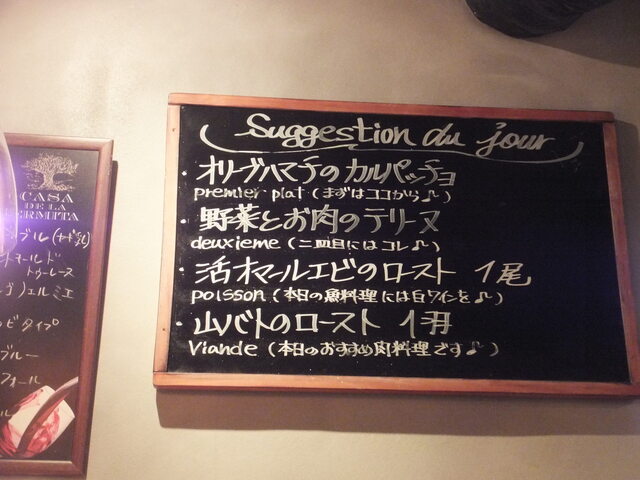 Suggestion du jour
・オリーブハマチのカルパッチョ
premier plat (まずはココから♪)
・野菜とお肉のテリーヌ
deuxieme (二皿目にはコレ♪)
・活オマールエビのロースト 1尾
poisson (本日の魚料理には白ワインを♪)
・山バトのロースト 1羽
Viande (本日のおすすめ肉料理です♪)
CASA
DE LA
ERMITA
トゥーレーヌ
ジェルミエ
ビタイプ
ブルー
フォール
ル